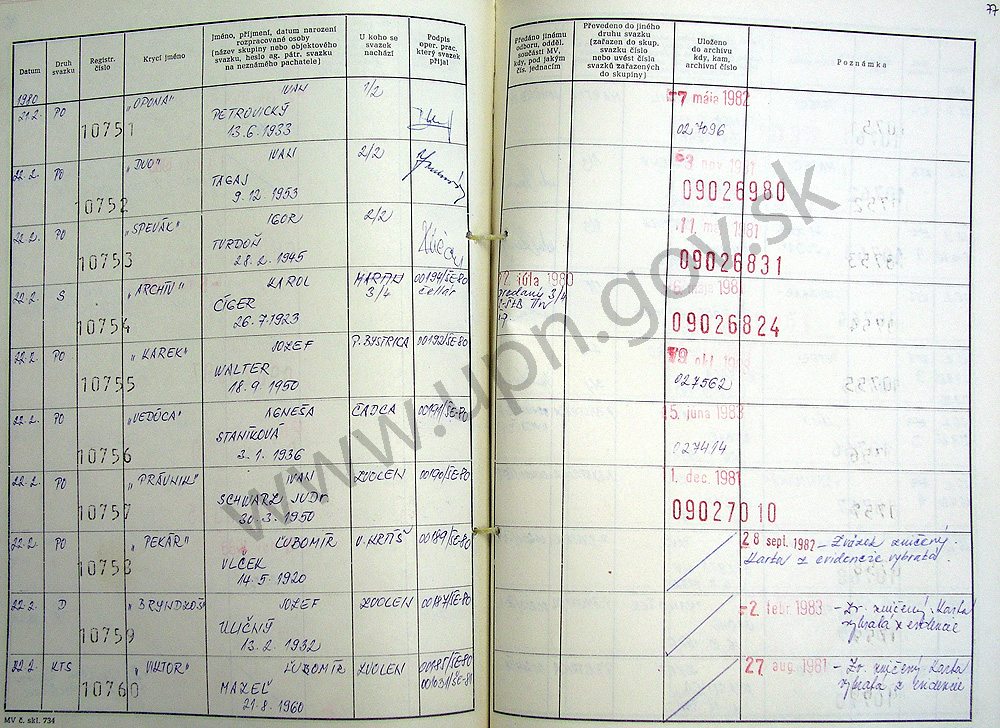 77
Datum
Druh
svazku
Registr.
číslo
Krycí jméno
Jméno, příjmení, datum narození
rozpracované osoby
(název skupiny nebo objektového
svazku, heslo ag. pátr. svazku
na neznámého pachatele)
U koho se
svazek
nachází
Podpis
oper. prac.
který svazek
přijal
Předáno jinému
odboru, odděl.
součásti MV,
kdy, pod jakým
čís. jednacím
Převedeno do jiného
druhu svazku
(zařazen do skup.
svazku číslo
nebo uvést čísla
svazků zařazených
do skupiny)
Uloženo
do archivu
kdy, kam,
archivní číslo
Poznámka
1980
21.2. PO 10751 „OPONA" IVAN 1/2
PETROVICKÝ
13.6.1933
7 mája 1982
027096
22.2. PO 10752 „DUO" IVAN 2/2
TAGAJ
9.12.1953
3 nov. 1981
09026980
22.2. PO 10753 „SPEVÁK" IGOR 2/2
TVRDOŇ
28.2.1945
11 mája 1981
09026831
22.2. S 10754 „ARCHÍV" KAROL MARTIN 00194/SE-80
3/4
CÍGER
26.7.1923
2. júla 1980
3/4
mája 198
09026824
22.2. PO 10755 „KAREK" JOZEF P. BYSTRICA 00192/SE-80
WALTER
18.9.1950
027562
22.2. PO 10756 „VEDÚCA" AGNEŠA ČADCA 00191/SE-80
STANÍKOVÁ
3.1.1936
5. júna 1983
027414
22.2. PO 10757 „PRÁVNIK" IVAN ZVOLEN 00190/SE-80
SCHWARZ JUDr.
30.3.1950
1. dec. 1981
09027010
22.2. PO 10758 „PEKÁR" ĽUBOMÍR V. KRTÍŠ 00189/SE-80
VLČEK
14.5.1920
28 sept. 1982 – Zväzok zničený.
Karta z evidencie vybratá
22.2. D 10759 „BRYNDZOŠ" JOZEF ZVOLEN 00187/SE-80
ULIČNÝ
13.2.1932
2. febr. 1983 – Zv. zničený. Karta
vybratá z evidencie
22.2. KTS 10760 „VIKTOR" ĽUBOMÍR ZVOLEN 00185/SE-80
MAZEĽ
21.8.1960
27 aug. 1981 – Zv. zničený. Karta
vybratá z evidencie
MV č. skl. 734
www.upn.gov.sk